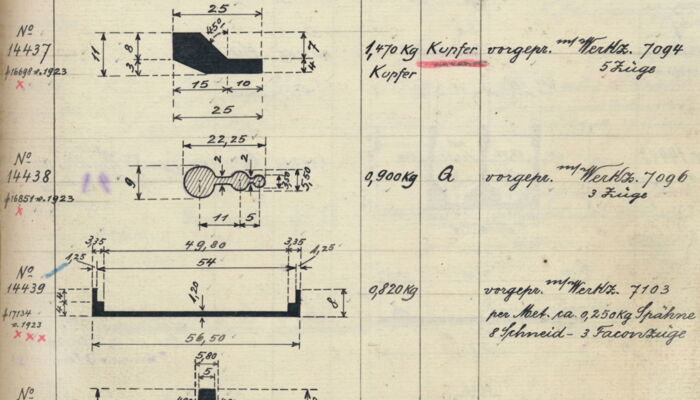 No
14437
f16698 v. 1923
x
25
45°
11
8
3
7
4
15
10
25
1,470 Kg
Kupfer
Kupfer
vorgepr. m/Werkz. 7094
5 Züge
No
14438
f16851 v. 1923
x
22,25
2
2
9
3,50
5,50
11
5
0,900 Kg
a
vorgepr. m/Werkz. 7096
3 Züge
No
14439
f17134
v. 1923
x x x
3,35
49,80
3,35
1,25
54
1,25
4
4
1,20
8
56,50
0,820 Kg
vorgepr. m/Werkz. 7103
per Met. ca. 0,250 Kg Spähne
8 Schneid- 3 Faconzüge
No
5,80
5